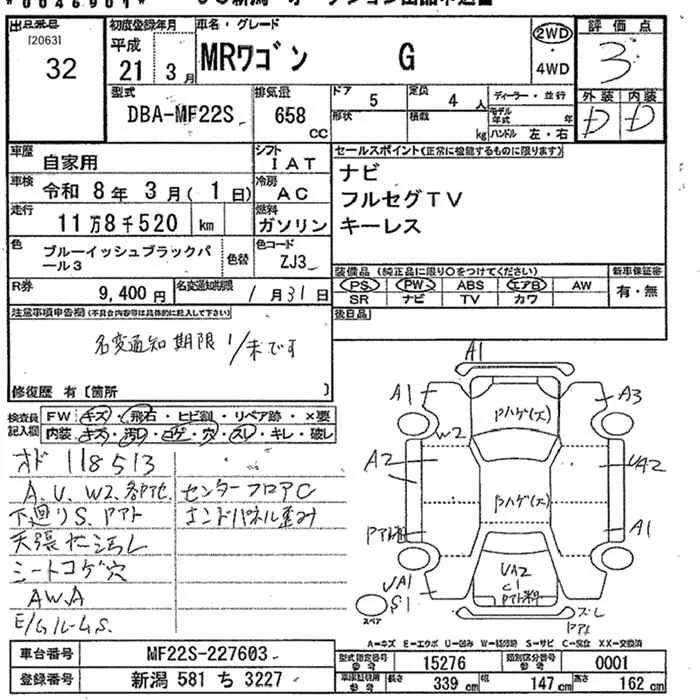 *0046901*
出品番号
[2063]
32
初度登録年月
平成
21年 3月
車名・グレード
MRワゴン G
2WD
・
4WD
評価点
3
外装 内装
D D
型式
DBA-MF22S
排気量
658
CC
ドア 5
定員 4 人
ディーラー・並行
形状
積載 kg
モデル年式 年
ハンドル 左・右
車歴 自家用
シフト IAT
車検 令和 8年 3月( 1日)
冷房 AC
走行 11万8千520 km
燃料 ガソリン
色 ブルーイッシュブラックパール3
色替
色コード ZJ3
R券 9,400円
名変通知期限 1月31日
セールスポイント(正常に機能するものに限ります)
ナビ
フルセグTV
キーレス
装備品 (純正品に限り○をつけてください)
新車保証書
PS PW ABS エアB AW
SR ナビ TV カワ
有・無
後日品
注意事項申告欄(不具合内容等は具体的に記入して下さい)
名変通知期限 1/末です
修復歴 有〔箇所 〕
検査員記入欄
FW キズ・飛石・ヒビ割・リペア跡・×要
内装 キズ・汚レ・コゲ・穴・スレ・キレ・破レ
オド 118513
A.U.W2.各部他.
センターフロアC
下廻りS.アト
エンドパネル歪み
天張 汚レ
シートコゲ穴
AW.A
A1
A1
A3
Pハゲ(大)
W2
A2
UA2
Pハゲ(大)
A1
UA2
C1
UA1
S1
スペア
スレ
A=キズ E=エクボ U=凹み W=補修跡 S=サビ C=腐食 XX=交換済
車台番号 MF22S-227603
登録番号 新潟 581 ち 3227
型式指定番号 参考 15276
類別区分番号 参考 0001
車庫証明用 参考
長さ 339 cm
幅 147 cm
高さ 162 cm